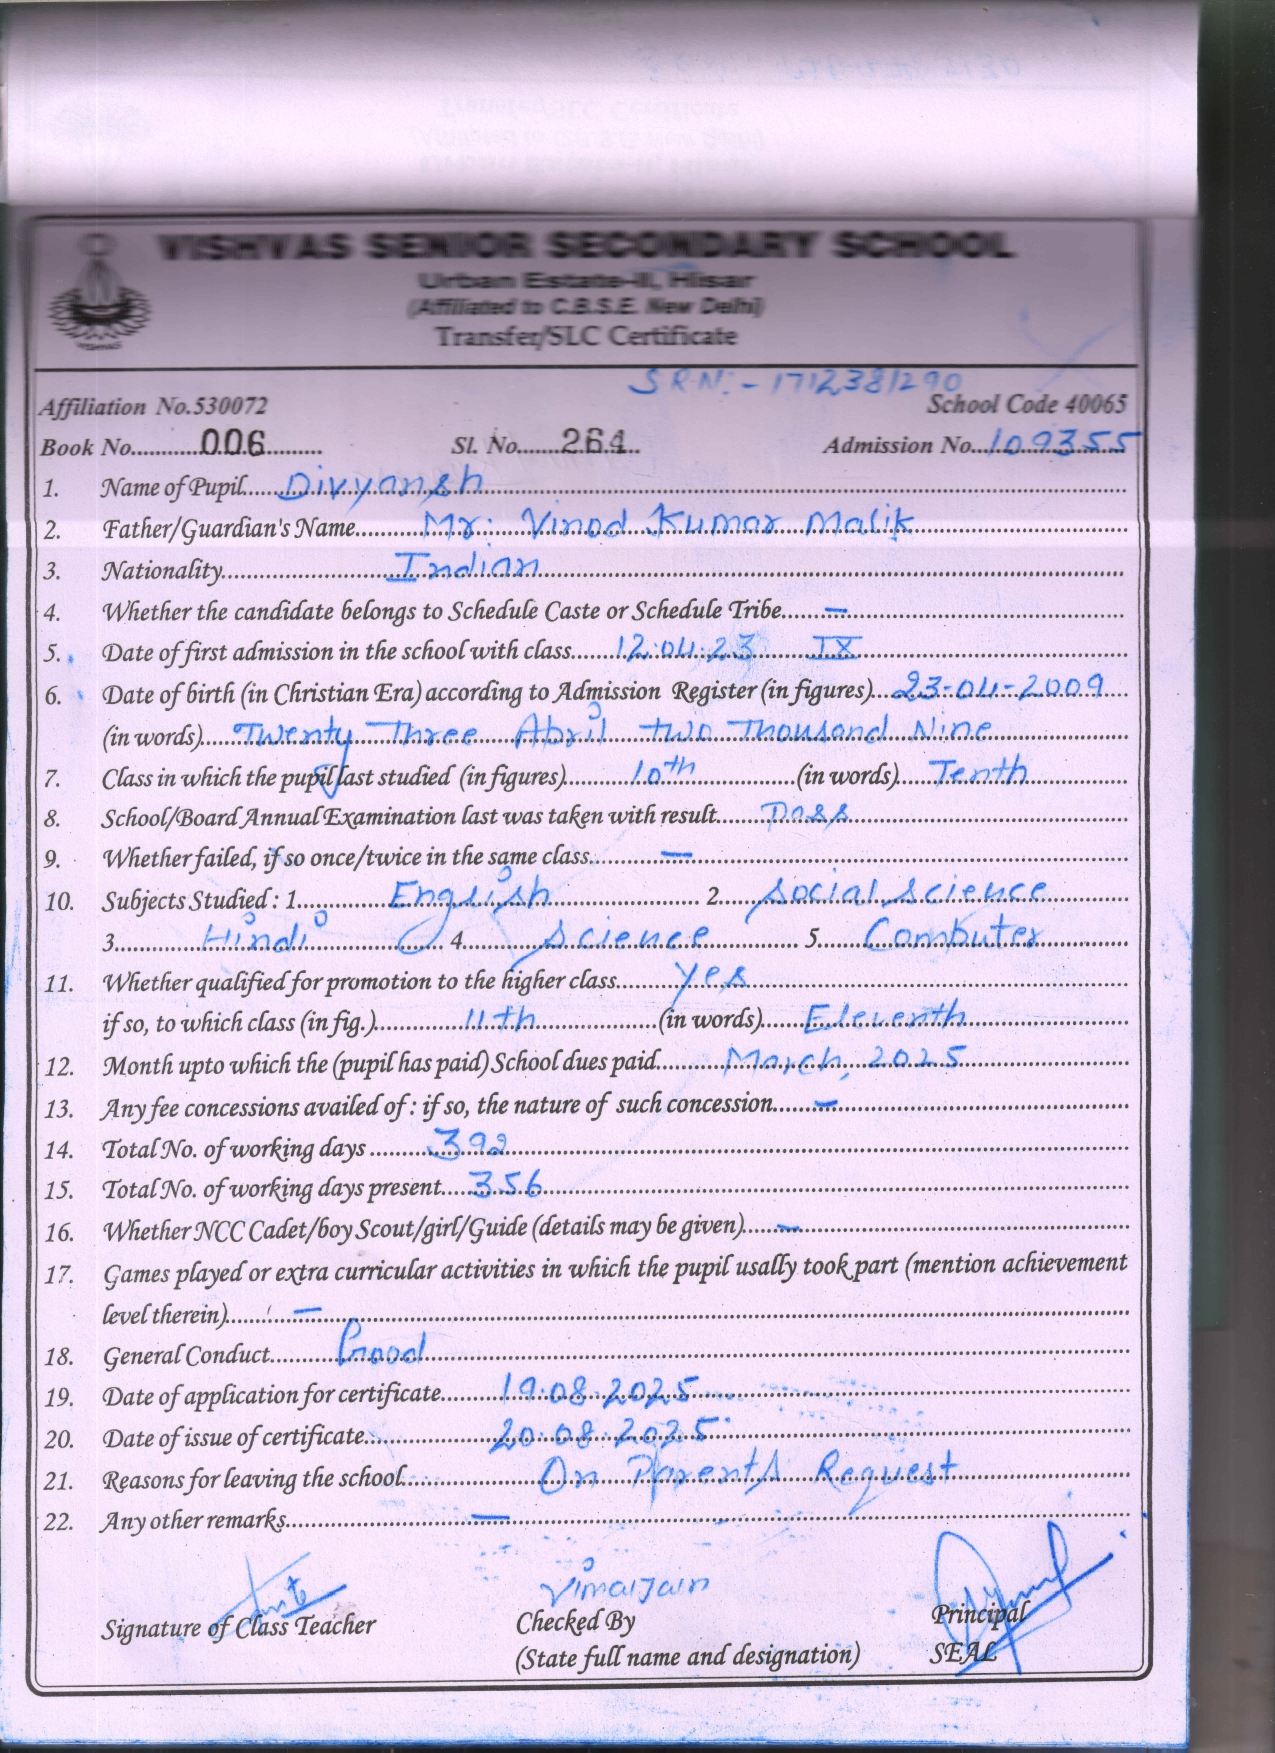 VISHVAS SENIOR SECONDARY SCHOOL
Urban Estate-II, Hisar
(Affiliated to C.B.S.E. New Delhi)
Transfer/SLC Certificate
VISHVAS
S.R.N:- 1712381290
Affiliation No.530072 School Code 40065
Book No. 006 Sl. No. 264 Admission No. 109355
1. Name of Pupil Divyansh
2. Father/Guardian's Name Mr. Vinod Kumar Malik
3. Nationality Indian
4. Whether the candidate belongs to Schedule Caste or Schedule Tribe —
5. Date of first admission in the school with class 12.04.23 IX
6. Date of birth (in Christian Era) according to Admission Register (in figures) 23-04-2009
(in words) Twenty Three April two Thousand Nine
7. Class in which the pupil last studied (in figures) 10th (in words) Tenth
8. School/Board Annual Examination last was taken with result Pass
9. Whether failed, if so once/twice in the same class —
10. Subjects Studied : 1. English 2. Social Science
3. Hindi 4. Science 5. Computer
11. Whether qualified for promotion to the higher class yes
if so, to which class (in fig.) 11th (in words) Eleventh
12. Month upto which the (pupil has paid) School dues paid March, 2025
13. Any fee concessions availed of : if so, the nature of such concession —
14. Total No. of working days 392
15. Total No. of working days present 356
16. Whether NCC Cadet/boy Scout/girl/Guide (details may be given) —
17. Games played or extra curricular activities in which the pupil usally took part (mention achievement
level therein) —
18. General Conduct Good
19. Date of application for certificate 19.08.2025
20. Date of issue of certificate 20.08.2025
21. Reasons for leaving the school On Parents Request
22. Any other remarks —
Vimal Jain
Signature of Class Teacher Checked By Principal
(State full name and designation) SEAL